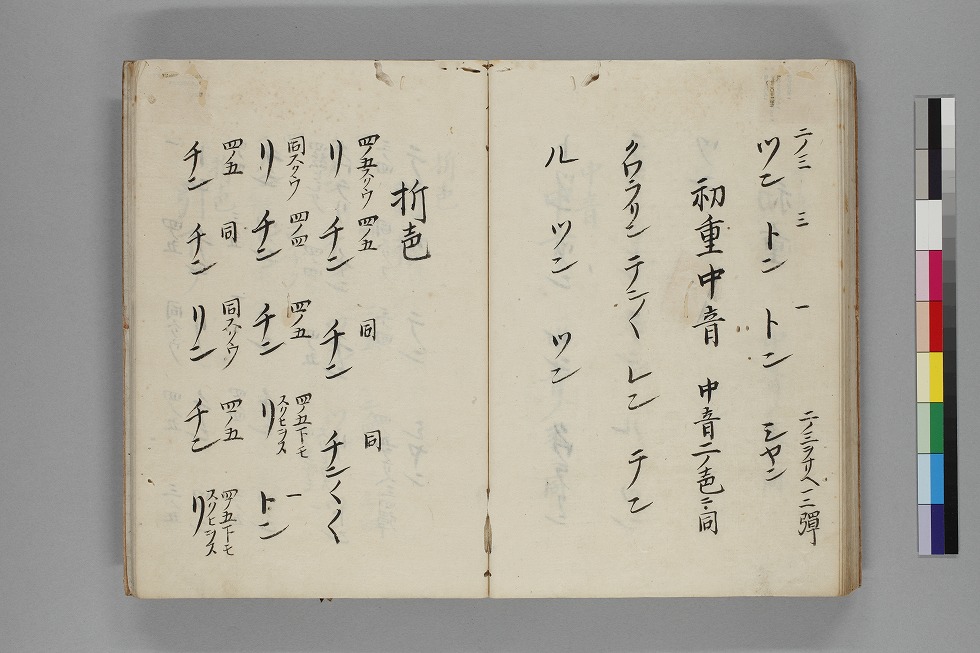 二ノ三　三　一　二ノ三ヲサヘ一三彈
ツン　トン　トン　シヤン
初重中音　中音二ノ声ニ同
クワラリン　テン〱　レン　テン
ル　ツン　ツン
折声
四ノ五スクウ　四ノ五　同　同
リ　チン　チン　チン〱〱
同スクウ　四ノ四　四ノ五　四ノ五下モスリヒヾス　一
リ　チン　チン　リ　トン
四ノ五　同　同スクウ　四ノ五　四ノ五下モスリヒヾス
チン　チン　リン　チン　リ